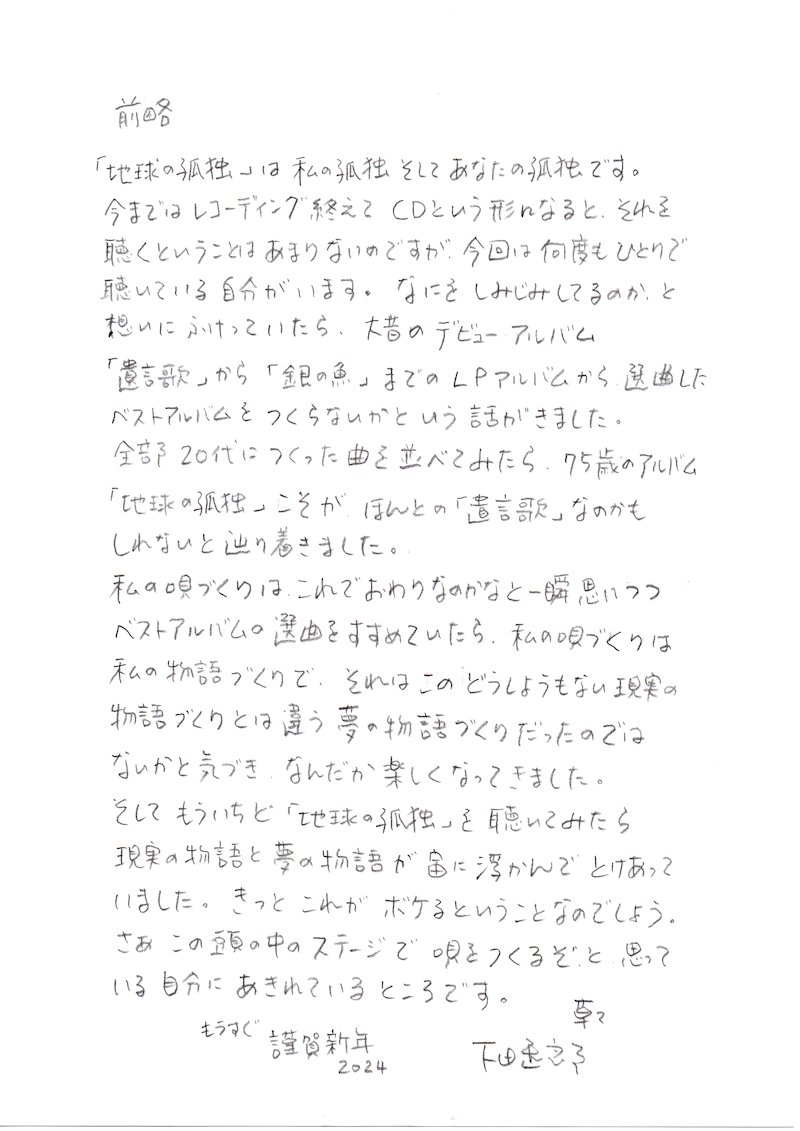 前略
「地球の孤独」は 私の孤独 そして あなたの孤独です。
今まではレコーディング終えて CDという形になると、それを
聴くということはあまりないのですが、今回は何度もひとりで
聴いている自分がいます。なにを しみじみしてるのか、と
想いにふけっていたら、大昔のデビューアルバム
「遺言歌」から「銀の魚」までのLPアルバムから、選曲した
ベストアルバムを つくらないかという話がきました。
全部 20代につくった曲を並べてみたら、75歳のアルバム
「地球の孤独」こそが、ほんとの「遺言歌」なのかも
しれないと辿り着きました。
私の唄づくりは、これでおわりなのかなと一瞬思いつつ
ベストアルバムの選曲をすすめていたら、私の唄づくりは
私の物語づくりで、それはこのどうしようもない現実の
物語づくりとは違う夢の物語づくりだったのでは
ないかと気づき、なんだか楽しくなってきました。
そして もういちど「地球の孤独」を聴いてみたら
現実の物語と夢の物語が宙に浮かんで とけあって
いました。きっと これが ボケるということなのでしょう。
さあ この頭の中のステージで 唄をつくるぞ、と 思って
いる自分に あきれているところです。
草々
もうすぐ 謹賀新年
2024
下田逸郎